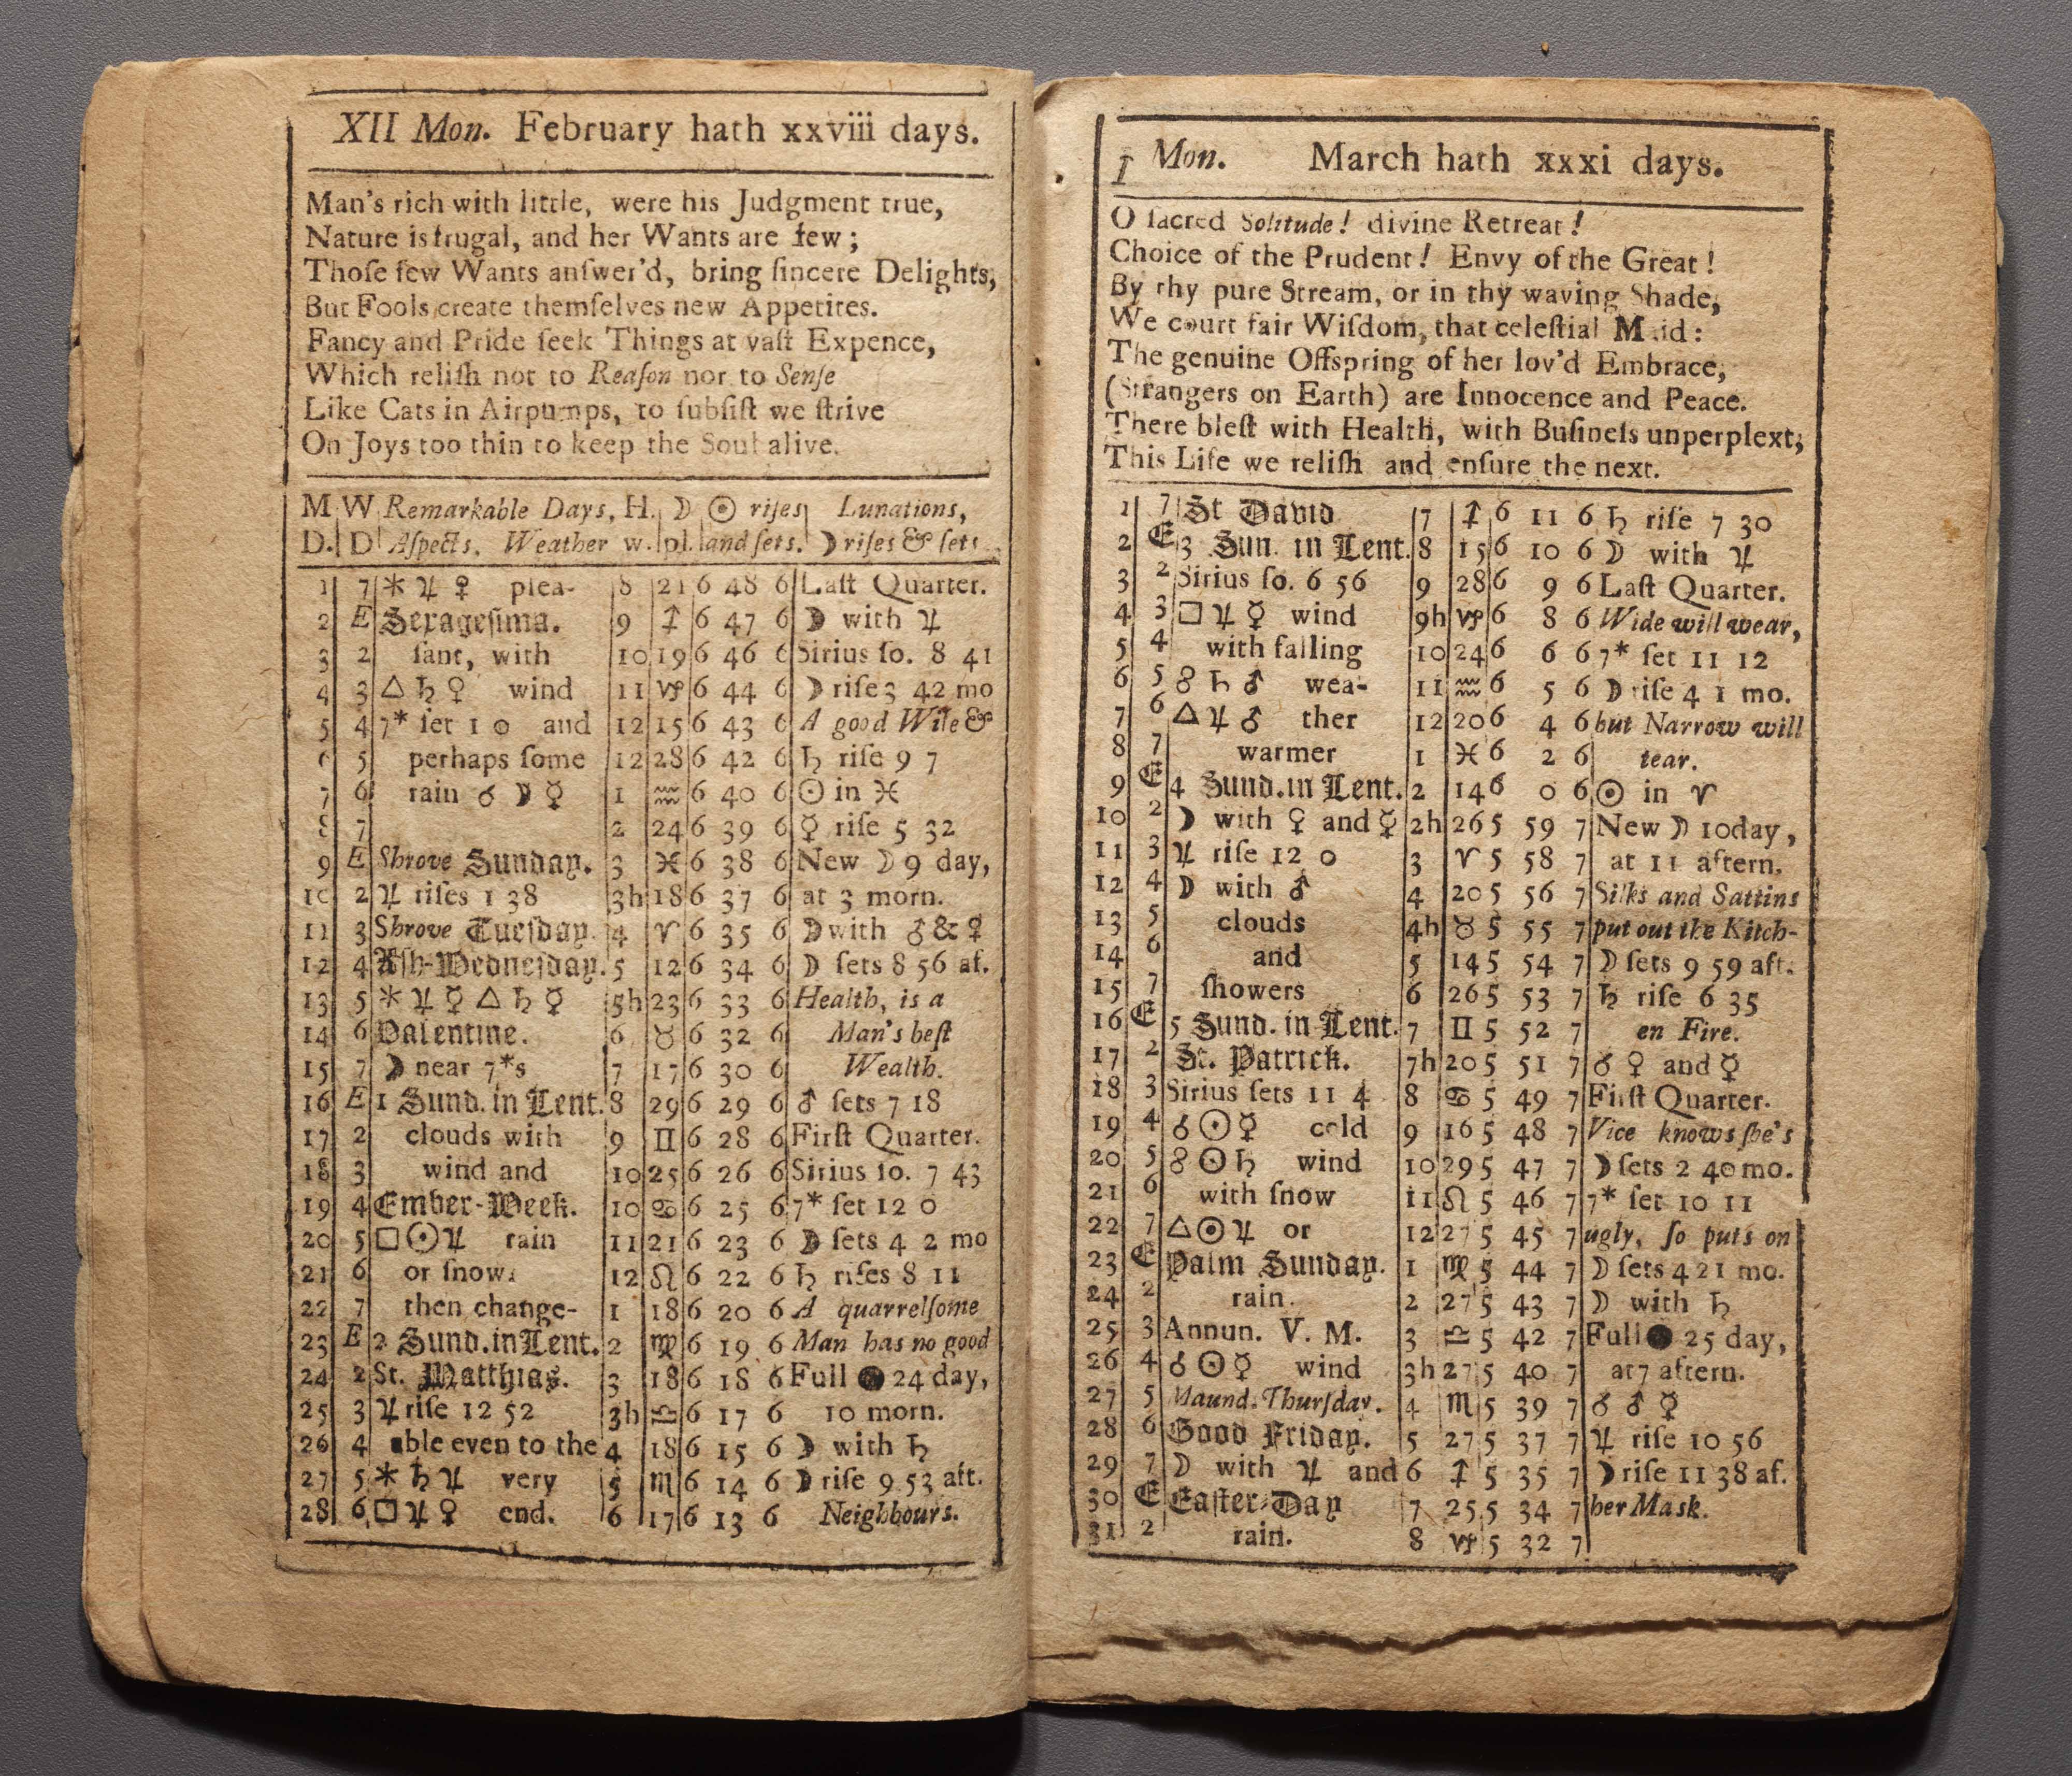 XII Mon. February hath xxviii days.
Man's rich with little, were his Judgment true,
Nature is frugal, and her Wants are few;
Thoſe few Wants anſwer'd, bring ſincere Delights,
But Fools create themſelves new Appetites.
Fancy and Pride ſeek Things at vaſt Expence,
Which reliſh not to Reaſon nor to Senſe
Like Cats in Airpumps, to ſubſiſt we ſtrive
On Joys too thin to keep the Soul alive.
M W Remarkable Days, H. ☽ ☉ riſes Lunations,
D. D Aſpects, Weather w. pl. and ſets. ☽ riſes & ſets
1 7 ⚹ ♃ ♀ plea- 8 21 6 48 6 Laſt Quarter.
2 E Sexageſima. 9 ♐ 6 47 6 ☽ with ♃
3 2 ſant, with 10 19 6 46 6 Sirius ſo. 8 41
4 3 △ ♄ ♀ wind 11 ♑ 6 44 6 ☽ riſe 3 42 mo
5 4 7* ſet 1 0 and 12 15 6 43 6 A good Wife &
6 5 perhaps ſome 12 28 6 42 6 ♄ riſe 9 7
7 6 rain ☌ ☽ ☿ 1 ♒ 6 40 6 ☉ in ♓
8 7 2 24 6 39 6 ☿ riſe 5 32
9 E Shrove Sunday. 3 ♓ 6 38 6 New ☽ 9 day,
10 2 ♃ riſes 1 38 3h 18 6 37 6 at 3 morn.
11 3 Shrove Tueſday. 4 ♈ 6 35 6 ☽ with ♂ & ♀
12 4 Aſh-Wedneſday. 5 12 6 34 6 ☽ ſets 8 56 af.
13 5 ⚹ ♃ ☿ △ ♄ ☿ 5h 23 6 33 6 Health, is a
14 6 Valentine. 6 ♉ 6 32 6 Man's beſt
15 7 ☽ near 7*s 7 17 6 30 6 Wealth.
16 E 1 Sund. in Lent. 8 29 6 29 6 ♂ ſets 7 18
17 2 clouds with 9 ♊ 6 28 6 Firſt Quarter.
18 3 wind and 10 25 6 26 6 Sirius ſo. 7 43
19 4 Ember-Week. 10 ♋ 6 25 6 7* ſet 12 0
20 5 □ ☉ ♃ rain 11 21 6 23 6 ☽ ſets 4 2 mo
21 6 or ſnow, 12 ♌ 6 22 6 ♄ riſes 8 11
22 7 then change- 1 18 6 20 6 A quarrelſome
23 E 2 Sund. in Lent. 2 ♍ 6 19 6 Man has no good
24 2 St. Matthias. 3 18 6 18 6 Full ● 24 day,
25 3 ♃ riſe 12 52 3h ♎ 6 17 6 10 morn.
26 4 able even to the 4 18 6 15 6 ☽ with ♄
27 5 ⚹ ♄ ♃ very 5 ♏ 6 14 6 ☽ riſe 9 53 aft.
28 6 □ ♃ ♀ end. 6 17 6 13 6 Neighbours.
I Mon. March hath xxxi days.
O ſacred Solitude! divine Retreat!
Choice of the Prudent! Envy of the Great!
By thy pure Stream, or in thy waving Shade,
We court fair Wiſdom, that celeſtial Maid:
The genuine Offspring of her lov'd Embrace,
(Strangers on Earth) are Innocence and Peace.
There bleſt with Health, with Buſineſs unperplext,
This Life we reliſh and enſure the next.
1 7 St David 7 ♐ 6 11 6 ♄ riſe 7 30
2 E 3 Sun. in Lent. 8 15 6 10 6 ☽ with ♃
3 2 Sirius ſo. 6 56 9 28 6 9 6 Laſt Quarter.
4 3 □ ♃ ☿ wind 9h ♑ 6 8 6 Wide will wear,
5 4 with falling 10 24 6 6 6 7* ſet 11 12
6 5 ☍ ♄ ♂ wea- 11 ♒ 6 5 6 ☽ riſe 4 1 mo.
7 6 △ ♃ ♂ ther 12 20 6 4 6 but Narrow will
8 7 warmer 1 ♓ 6 2 6 tear.
9 E 4 Sund. in Lent. 2 14 6 0 6 ☉ in ♈
10 2 ☽ with ♀ and ☿ 2h 26 5 59 7 New ☽ 10 day,
11 3 ♃ riſe 12 0 3 ♈ 5 58 7 at 11 aftern.
12 4 ☽ with ♂ 4 20 5 56 7 Silks and Sattins
13 5 clouds 4h ♉ 5 55 7 put out the Kitch-
14 6 and 5 14 5 54 7 ☽ ſets 9 59 aft.
15 7 ſhowers 6 26 5 53 7 ♄ riſe 6 35
16 E 5 Sund. in Lent. 7 ♊ 5 52 7 en Fire.
17 2 St. Patrick. 7h 20 5 51 7 ☌ ♀ and ☿
18 3 Sirius ſets 11 4 8 ♋ 5 49 7 Firſt Quarter.
19 4 ☌ ☉ ☿ cold 9 16 5 48 7 Vice knows ſhe's
20 5 ☍ ☉ ♄ wind 10 29 5 47 7 ☽ ſets 2 40 mo.
21 6 with ſnow 11 ♌ 5 46 7 7* ſet 10 11
22 7 △ ☉ ♃ or 12 27 5 45 7 ugly, ſo puts on
23 E Palm Sunday. 1 ♍ 5 44 7 ☽ ſets 4 21 mo.
24 2 rain. 2 27 5 43 7 ☽ with ♄
25 3 Annun. V. M. 3 ♎ 5 42 7 Full ● 25 day,
26 4 ☌ ☉ ☿ wind 3h 27 5 40 7 at 7 aftern.
27 5 Maund. Thurſday. 4 ♏ 5 39 7 ☌ ♂ ☿
28 6 Good Friday. 5 27 5 37 7 ♃ riſe 10 56
29 7 ☽ with ♃ and 6 ♐ 5 35 7 ☽ riſe 11 38 af.
30 E Eaſter-Day 7 25 5 34 7 her Mask.
31 2 rain. 8 ♑ 5 32 7